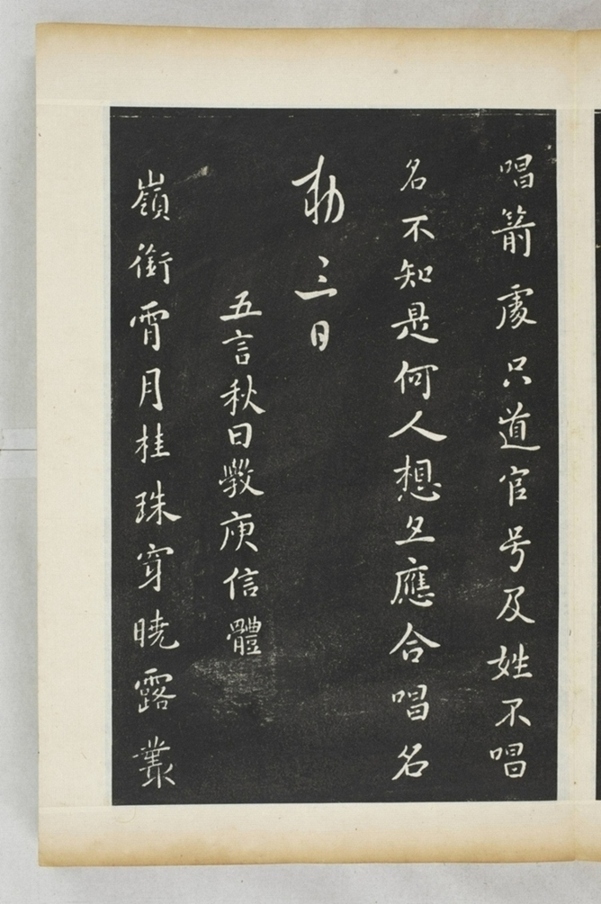 唱箭處只道官号及姓不唱
名不知是何人想亦應合唱名
勅 三日
五言秋日斆庾信體
嶺銜霄月桂珠穿曉露叢